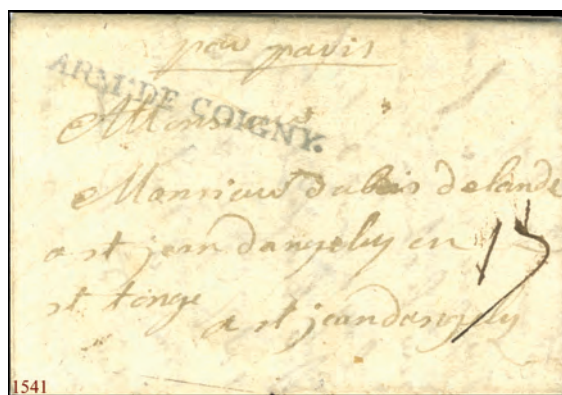 par paris
ARM: DE COIGNY.
Monsieur
Monsieur dubois delande
a st jean dangely en
st tonge
15
a st jeandangely
1541